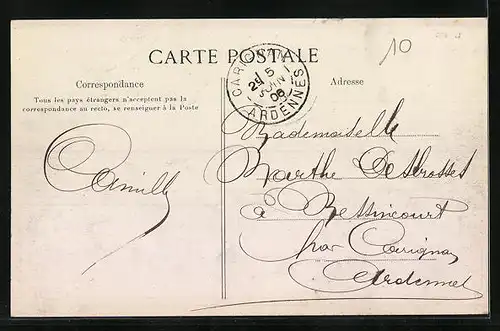 CARTE POSTALE
10
CARIGNAN
2E / 5
JUIN
08
ARDENNES
Correspondance
Tous les pays étrangers n'acceptent pas la
correspondance au recto, se renseigner à la Poste
Camille
Adresse
Mademoiselle
Marthe Destrosses
à Messincourt
par Carignan
Ardennes